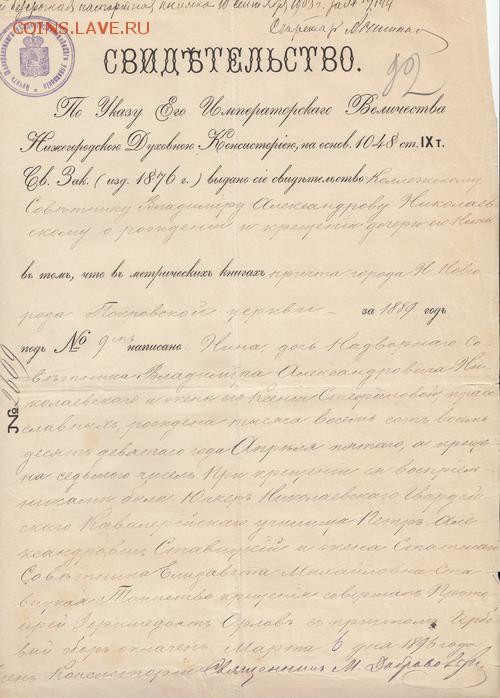 COINS.LAVE.RU
книжка 10 сентября 1903 г. за №
Секретарь
СВИДѢТЕЛЬСТВО.
92
По Указу Его Императорскаго Величества
Нижегородскою Духовною Консисторіею, на основ. 1048 ст. IX т.
Св. Зак. (изд. 1876 г.) выдано сіе свидѣтельство Коллежскому
Совѣтнику Владиміру Александрову Николаев-
скому о рожденіи и крещеніи дочери его Нины
въ томъ, что въ метрическихъ книгахъ причта города Н. Новго-
рода Покровской церкви за 1889 годъ
подъ № 9 написано: Нина, дочь Надворнаго Со-
вѣтника Владиміра Александровича Ни-
колаевскаго и жены его Ксеніи Стефановой право-
славныхъ, рождена тысяча восемь сотъ восемь
десятъ девятаго года Апрѣля пятаго, а креще-
на седьмого чиселъ. При крещеніи ея воспріем-
никами были: Юнкеръ Николаевскаго Гвардей-
скаго Кавалерійскаго училища Петръ Але-
ксандровичъ Ставицкій и жена Статскаго
Совѣтника Елизавета Михайловна Ста-
вицкая. Таинство крещенія совершалъ Прото-
іерей Орловъ съ причтомъ. Гербо-
вый сборъ оплаченъ. Марта 6 дня 1896 года
Членъ Консисторіи Священникъ М.